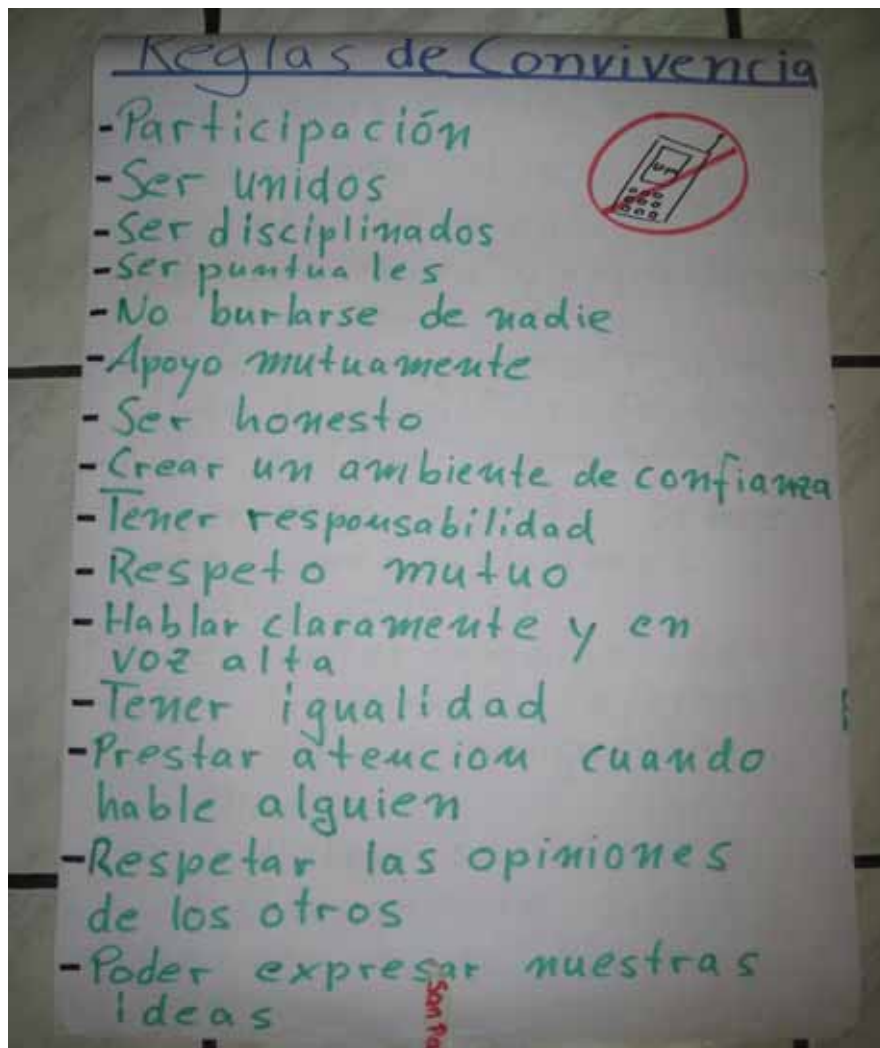 Reglas de Convivencia
-Participación
-Ser unidos
-Ser disciplinados
-Ser puntuales
-No burlarse de nadie
-Apoyo mutuamente
-Ser honesto
-Crear un ambiente de confianza
-Tener responsabilidad
-Respeto mutuo
-Hablar claramente y en
voz alta
-Tener igualidad
-Prestar atencion cuando
hable alguien
-Respetar las opiniones
de los otros
-Poder expresar nuestras
ideas
San